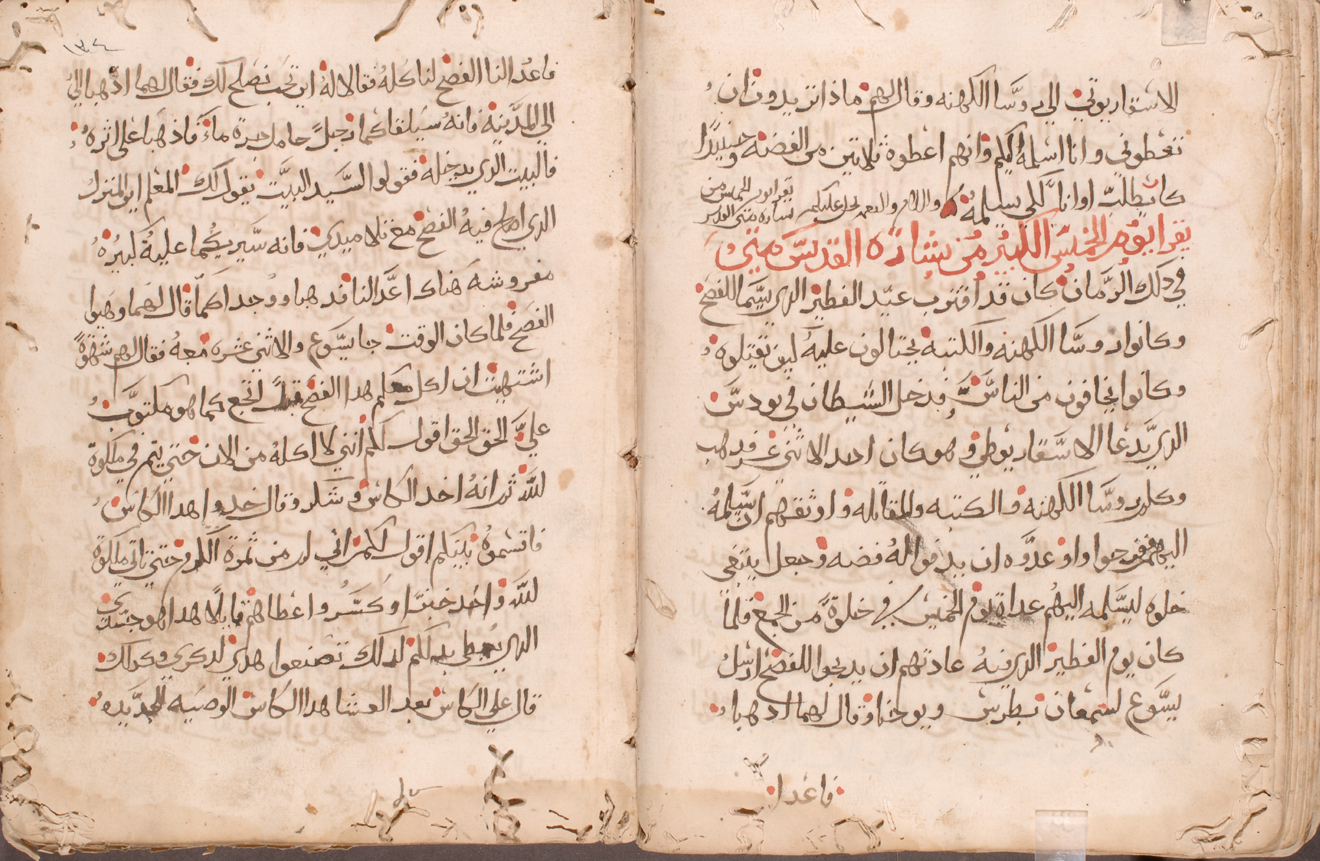 الاسقاريوتي الى روسا الكهنه وقال لهم ماذا تريدون ان
تعطوني وانا اسلمه اليكم فانهم اعطوه ثلاثين من الفضه وحينيدا
كان يطلب اوانا لكي يسلمه
يقرا يوم الخميس الكبير من بشاره القدس متى
في دلك الزمان كان قد اقترب عيد الفطير الدي يسما الفصح
وكانوا روسا الكهنه والكتبه يحتالون عليه ليف يقتلوه
وكانوا يخافون من الناس فدخل الشيطان في يودس
الدي يدعا الاسقاريوطي وهو كان احد الاثني عشر فدهب
وكلم روسا الكهنه والكتبه والمقاتله واوثقهم ان يسلمه
اليهم ففرحوا واوعدوه ان يدفعوا له فضه وجعل يبتغي
خلوه ليسلمه اليهم غداة يوم الخميس في خلوة من الجمع فلما
كان يوم الفطير الدي فيه عادتهم ان يدبحوا للفصح ارسل
يسوع لسمعان بطرس ويوحنا وقال لهما ادهبا
فاعدا
١٣٤
فاعدا لنا الفصح لناكله فقالا له اين تحب نصلح لك فقال لهما ادهبا الي
الي المدينه فانه سيلقاكما رجل حامل جرة ماء فادهبا على اثره
فالبيت الدي يدخله فقولوا لسيد البيت يقول لك المعلم اين المنزل
الدي اكل فيه الفصح مع تلاميدي فانه سيريكما عليه كبيره
مفروشه هناك اعدا لنا فدهبا ووجدا كما قال لهما وهيوا
الفصح فلما كان الوقت جا يسوع والاثني عشره معه فقال لهم شهوة
اشتهيت ان اكل معكم هدا الفصح قبل كما هو مكتوب
علي الحق الحق اقول لكم انني لا اكله من الان حتى يتم في ملكوة
لله ثم انه اخد الكاس وشكر وقال خدوا هدا الكاس
فاقسموه بينكم اقول لكم اني من ثمرة الكرم حتى تاتي ملكوة
لله واخد خبزا وكسر واعطاهم قايلا هدا هو جسدي
الدي يعطى بدلكم لدلك تصنعوا هدي لدكري وكدلك
قال على الكاس بعد العشا هدا الكاس الوصيه الجديده